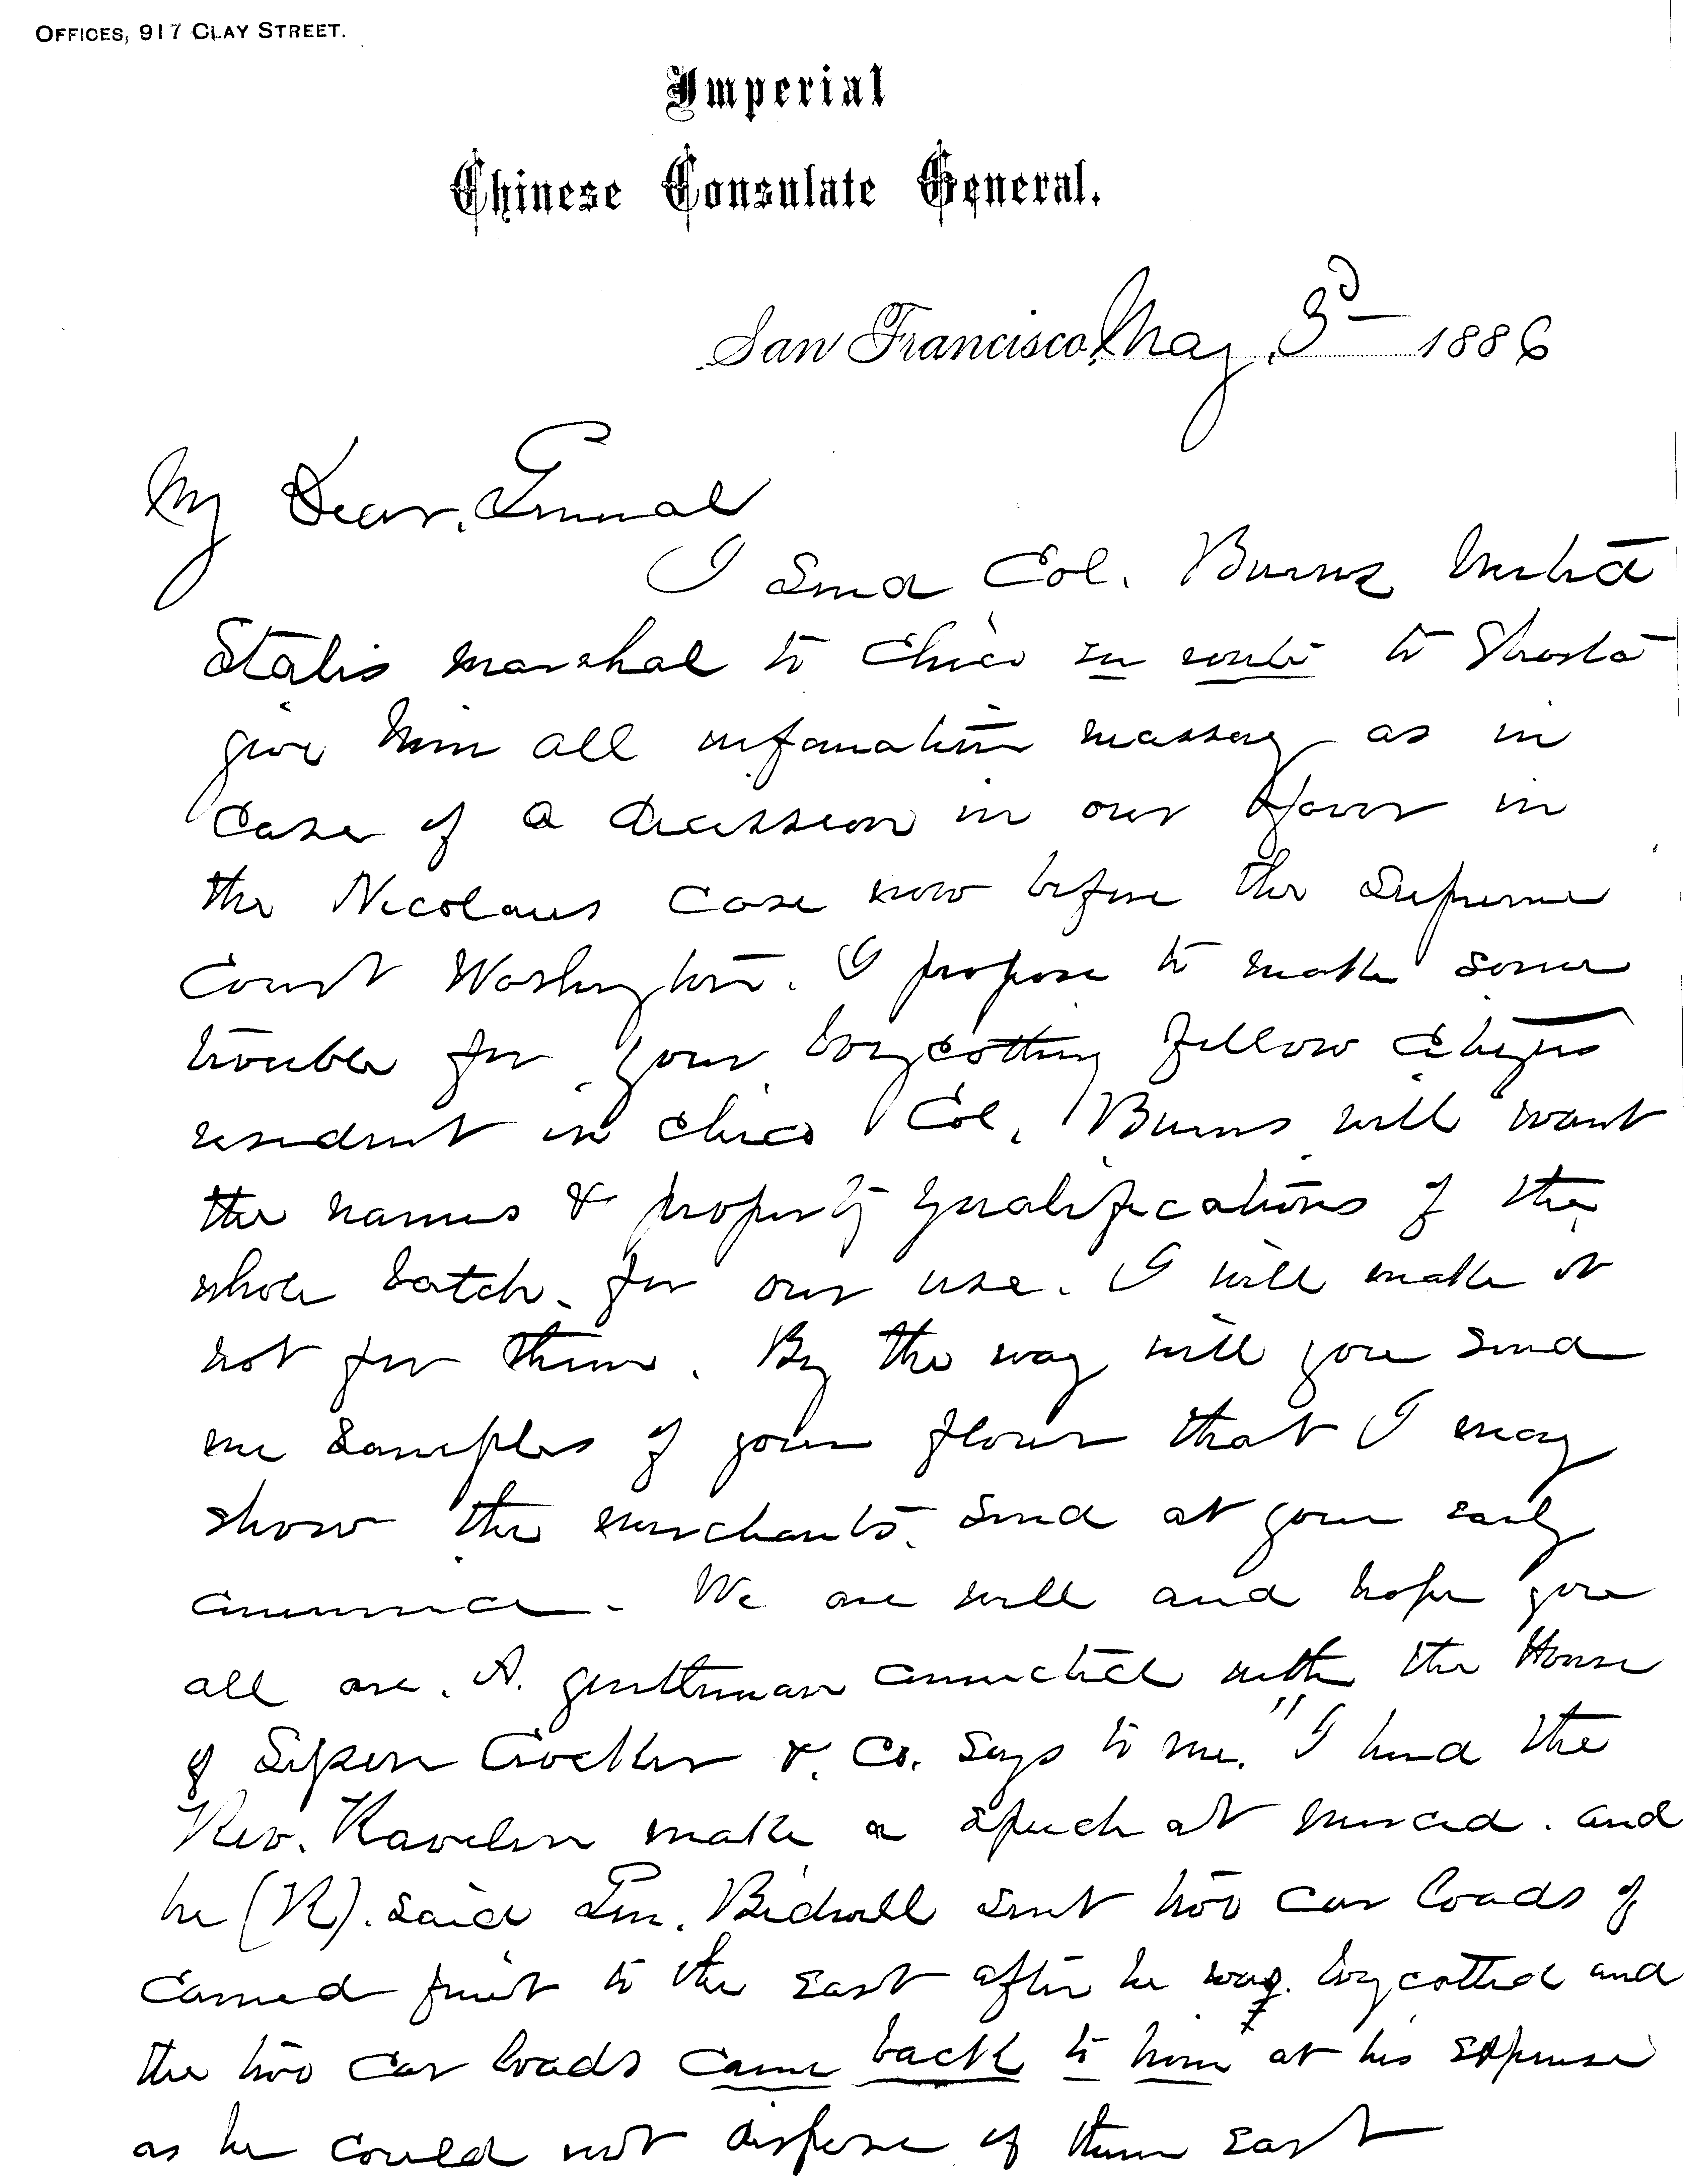 OFFICES, 917 CLAY STREET.
Imperial
Chinese Consulate General.
San Francisco, May 3d 1886
My Dear General
I send Col. Burns United
States marshal to Chico en route to Shasta
give him all information necessary as in
case of a decission in our favor in
the Nicolaus case now before the Supreme
Court Washington. I propose to make some
trouble for your boycotting fellow citizens
resident in Chico Col. Burns will want
the names & property qualifications of the
whole batch for our use. I will make it
hot for them. By the way will you send
me samples of your flour that I may
show the merchants. Send at your early
convenience. We are well and hope you
all are. A gentleman connected with the House
of Crocker & Co. says to me. "I heard the
Rev. make a speech at Merced. and
he (R). said Gen. Bidwell sent two car loads of
canned fruit to the East after he was boycotted and
the two car loads came back to him at his expense
as he could not dispose of them East